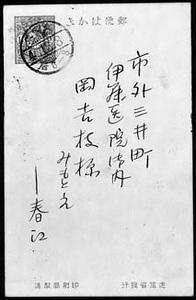 郵便はかき
市外三井町
伊藤医院御内
岡吉枝様
みもとえ
春江
逓信省発行
印刷局製造